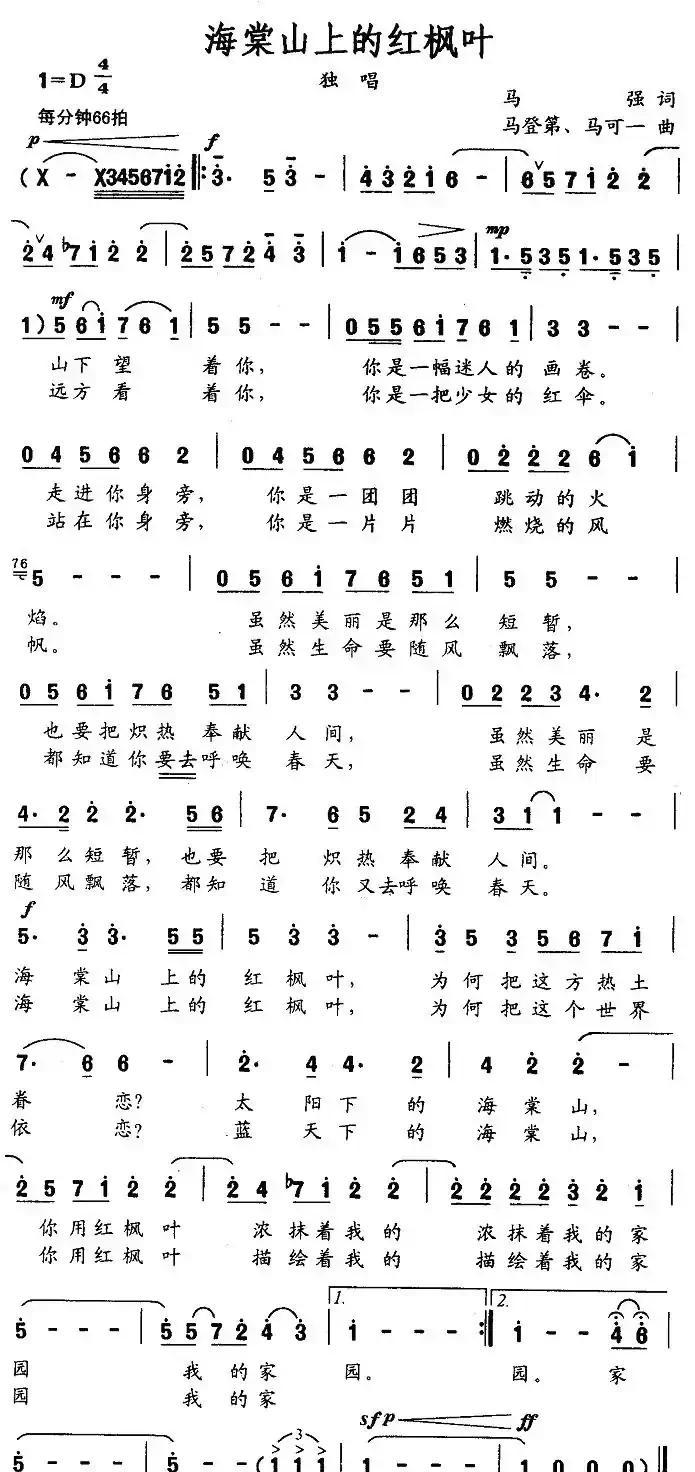 海棠山上的红枫叶
1=D 4/4 独 唱
马 强 词
每分钟66拍
马登第、马可一 曲
p f
(X - X3456712 |: 3· 5 3 - | 4321 6 - | 6 5 712 2
mp
2 4 b712 2 | 2572 4 3 | 1 - 1653 | 1·535 1·535
mf
1) 5 61 76 1 | 5 5 - - | 0556176 1 | 3 3 - - |
山下 望 着你, 你是一幅迷人的 画 卷。
远方 看 着你, 你是一把少女的 红 伞。
0 4 5 6 6 2 | 0 4 5 6 6 2 | 0 2 2 2 6 1
走进你身 旁, 你是一团团 跳动的火
站在你身 旁, 你是一片片 燃烧的风
76
5 - - - | 0 5 6 1 7 6 5 1 | 5 5 - - |
焰。 虽然美丽是那么 短 暂,
帆。 虽然生命要随风 飘 落,
0 5 6 1 7 6 5 1 | 3 3 - - | 0 2 2 3 4· 2
也要把炽热 奉献 人 间, 虽然美丽 是
都知道你要去呼唤 春 天, 虽然生命 要
4· 2 2 2· 5 6 | 7· 6 5 2 4 | 3 1 1 - -
那 么短 暂, 也要 把 炽热奉献 人 间。
随 风飘 落, 都知 道 你又去呼唤 春 天。
f
5· 3 3· 5 5 | 5 3 3 - | 3 5 3 5 6 7 1
海 棠山 上的 红 枫 叶, 为何把这方热土
海 棠山 上的 红 枫 叶, 为何把这个世界
7· 6 6 - | 2· 4 4· 2 | 4 2 2 -
眷 恋? 太 阳下 的 海 棠 山,
依 恋? 蓝 天下 的 海 棠 山,
2 5 7 1 2 2 | 2 4 b7 1 2 2 | 2 2 2 3 2 1
你用红枫 叶 浓抹着我的 浓抹着我的家
你用红枫 叶 描绘着我的 描绘着我的家
1. 2.
5 - - - | 5 5 7 2 4 3 | 1 - - - :| 1 - - 4 6
园 我 的家 园。 园。 家
园 我 的家
sfp ff
3
5 - - - | 5 - - (1 1 1 | 1 - - - | 1 0 0 0)||